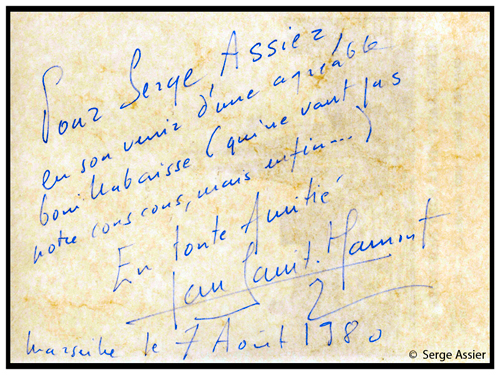 Pour Serge Assier
en son venir d'une agréable
bouillabaisse (qui ne vaut pas
notre couscous, mais enfin...)
En toute Amitié
Marseille le 7 Août 1980
© Serge Assier